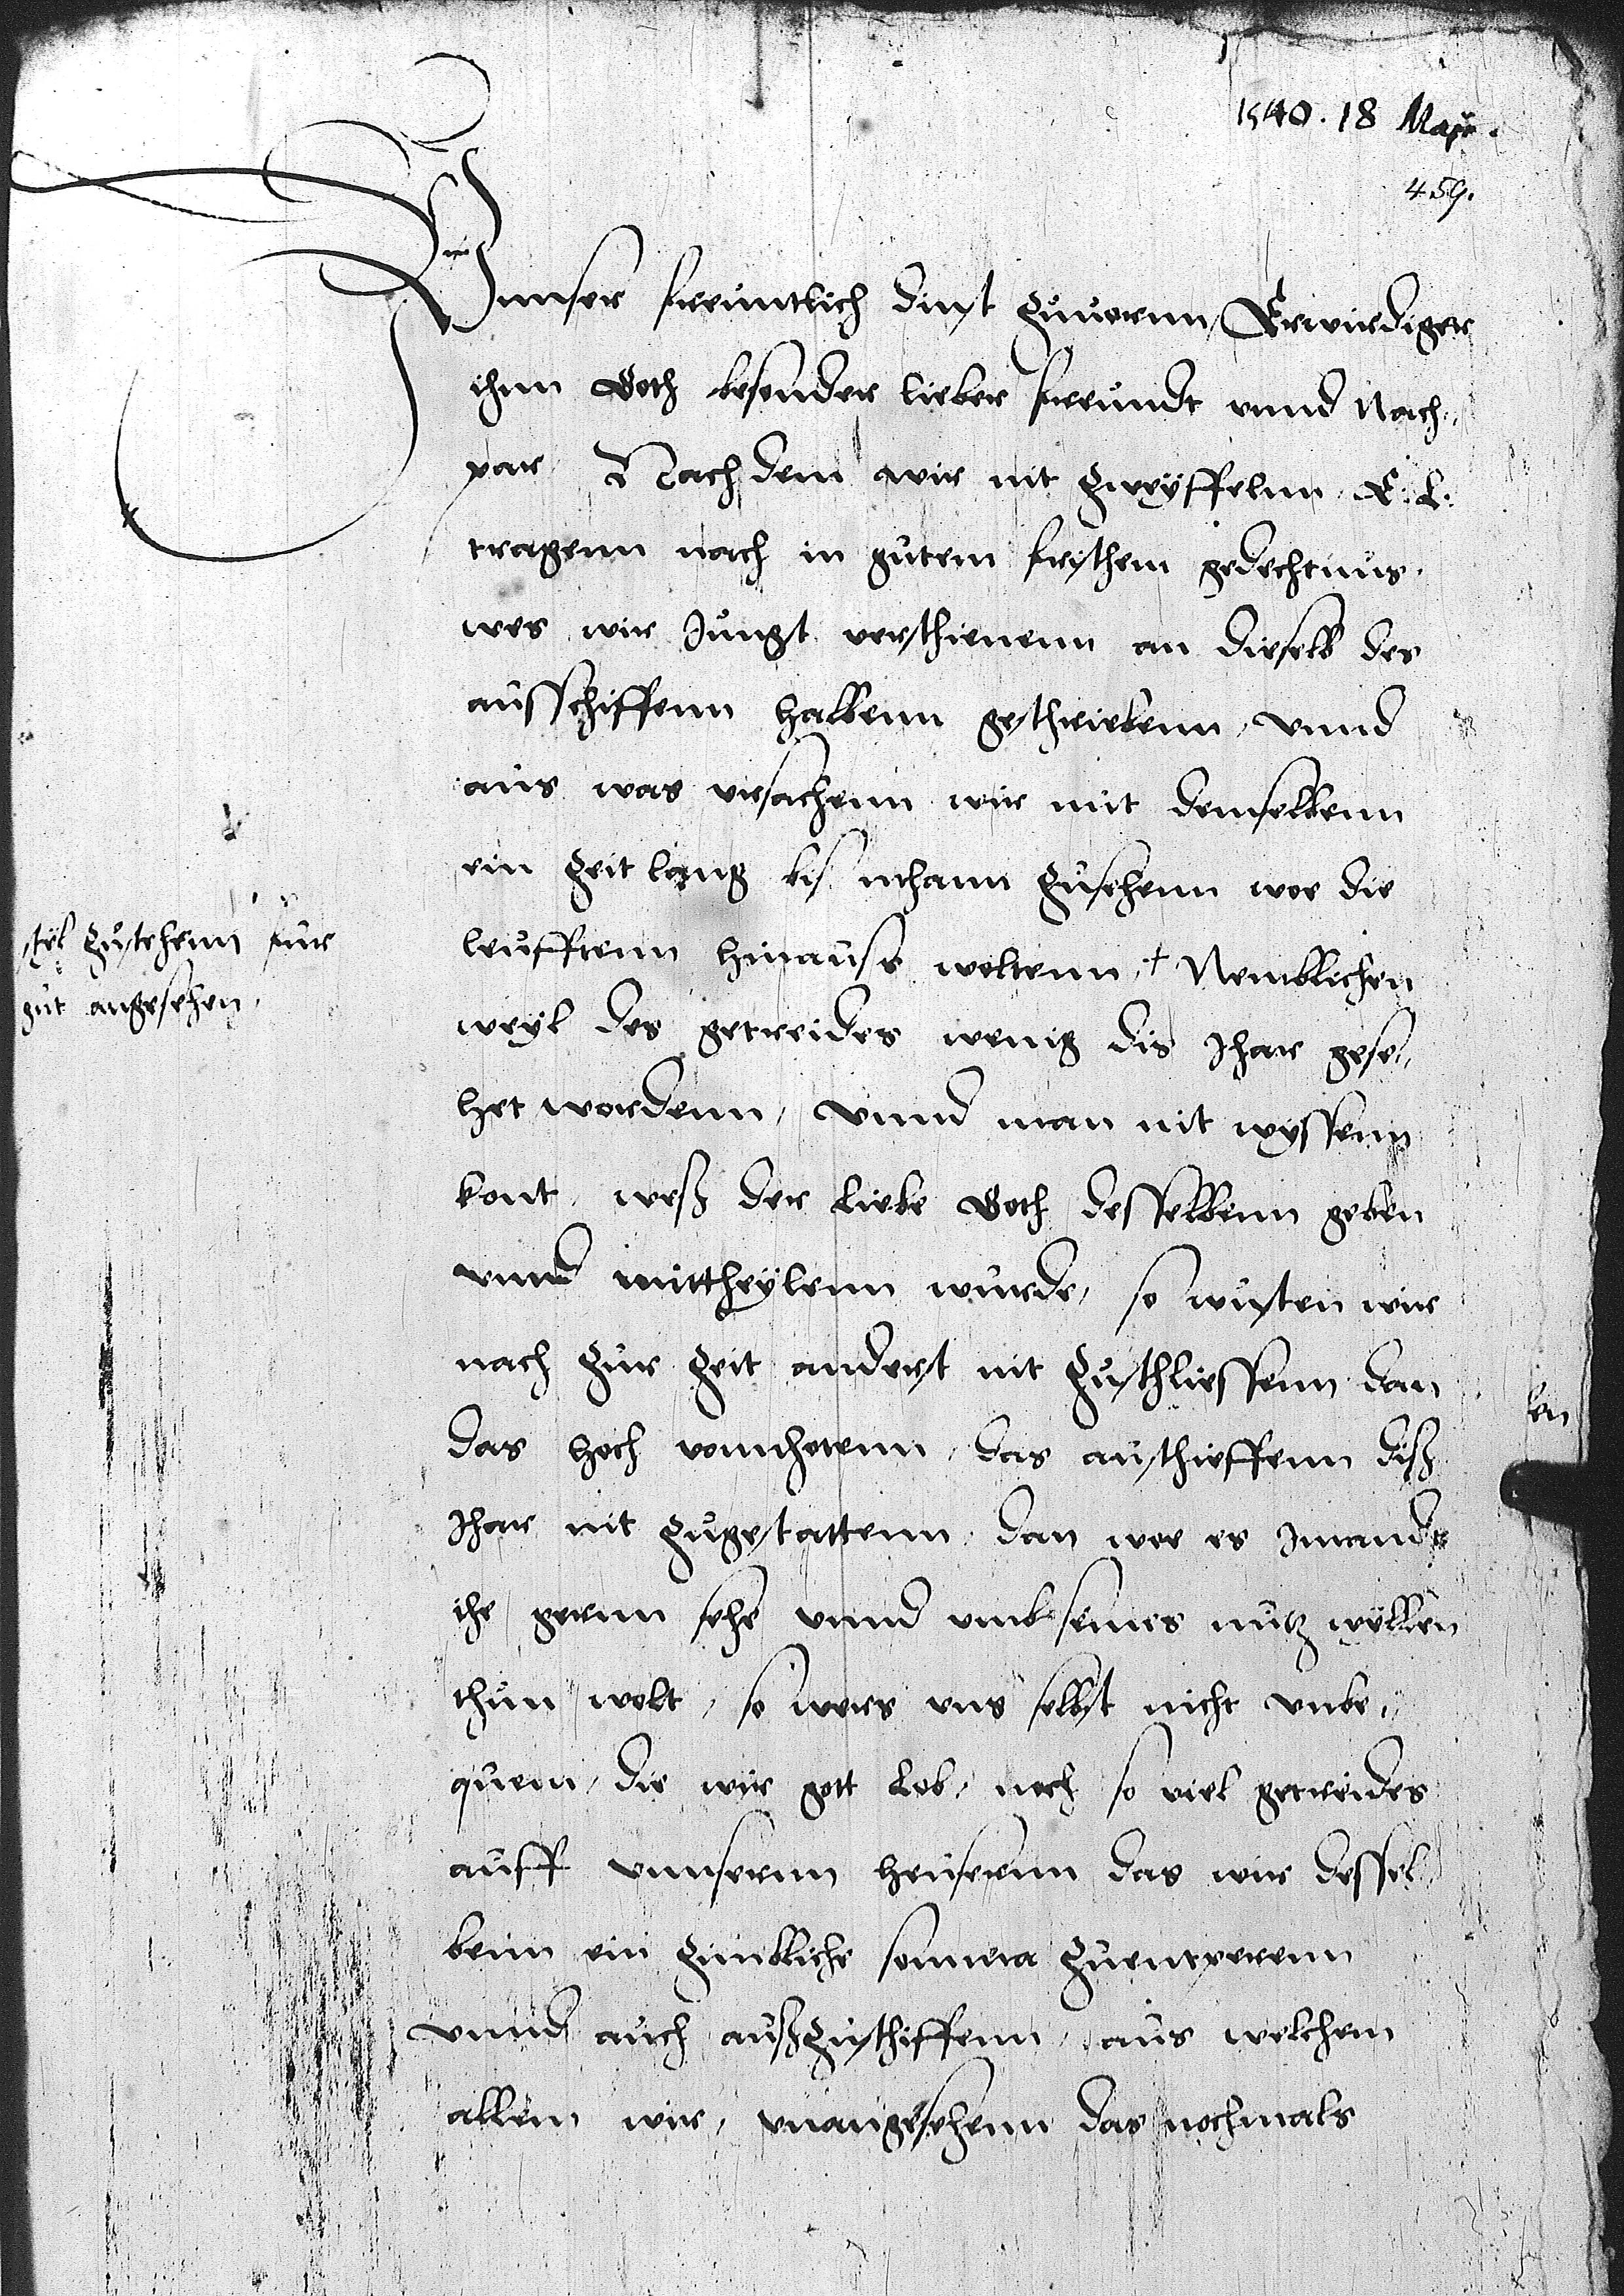 1540. 18 Maye.
459.
Vnnser freuntlich dinst zuuornn, Erwirdiger
ihnn Goth besonder lieber freundt vnnd Nach¬
par, Nach dem wir nit zweyffelnn, E. L.
tragenn noch in gutem frischem gedechtnus,
wes wir Jungst verschienenn an dieselb des
ausschiffenn halbenn geschriebenn, vnnd
aus was vrsachenn wir mit demselbenn
ein zeit lang bis mhann zusehenn wor die
leufftenn hinauss woltenn, + Nemblichen
styl zustehenn fur
gut angesehen.
weyl des getreides wenig dis Jhar gese¬
het wordenn, vnnd man nit wyssenn
kont, wess der liebe Goth desselbenn geben
vnnd mittheylenn wurde, so wusten wir
nach zur zeit anderst nit zuschliessenn dan
das hoch vonnhotenn, das auschieffenn diss
Jhar nit zugestattenn, dan wor es Jmandt
ihe gernn sehe vnnd vmb seines nutz wyllen
thun wolt, so wers vns selbst nicht vnbe¬
quem, die wir gott lob, noch so viel getreides
auff vnnsernn heusernn das wir dessel¬
benn ein zimbliche somma zuentperenn
vnnd auch ausszuschiffenn, aus welchem
allem wir, vnangesehenn das nochmals